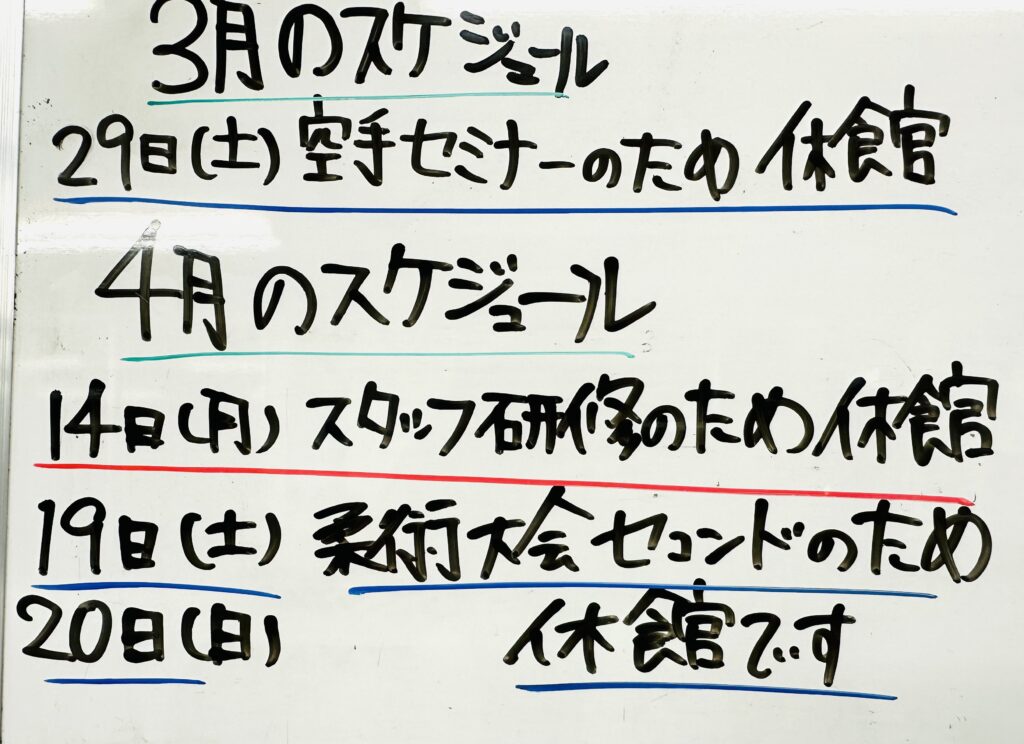 3月のスケジュール
29日(土) 空手セミナーのため 休館
4月のスケジュール
14日(月) スタッフ研修のため休館
19日(土) 柔術大会セコンドのため
20日(日) 休館です